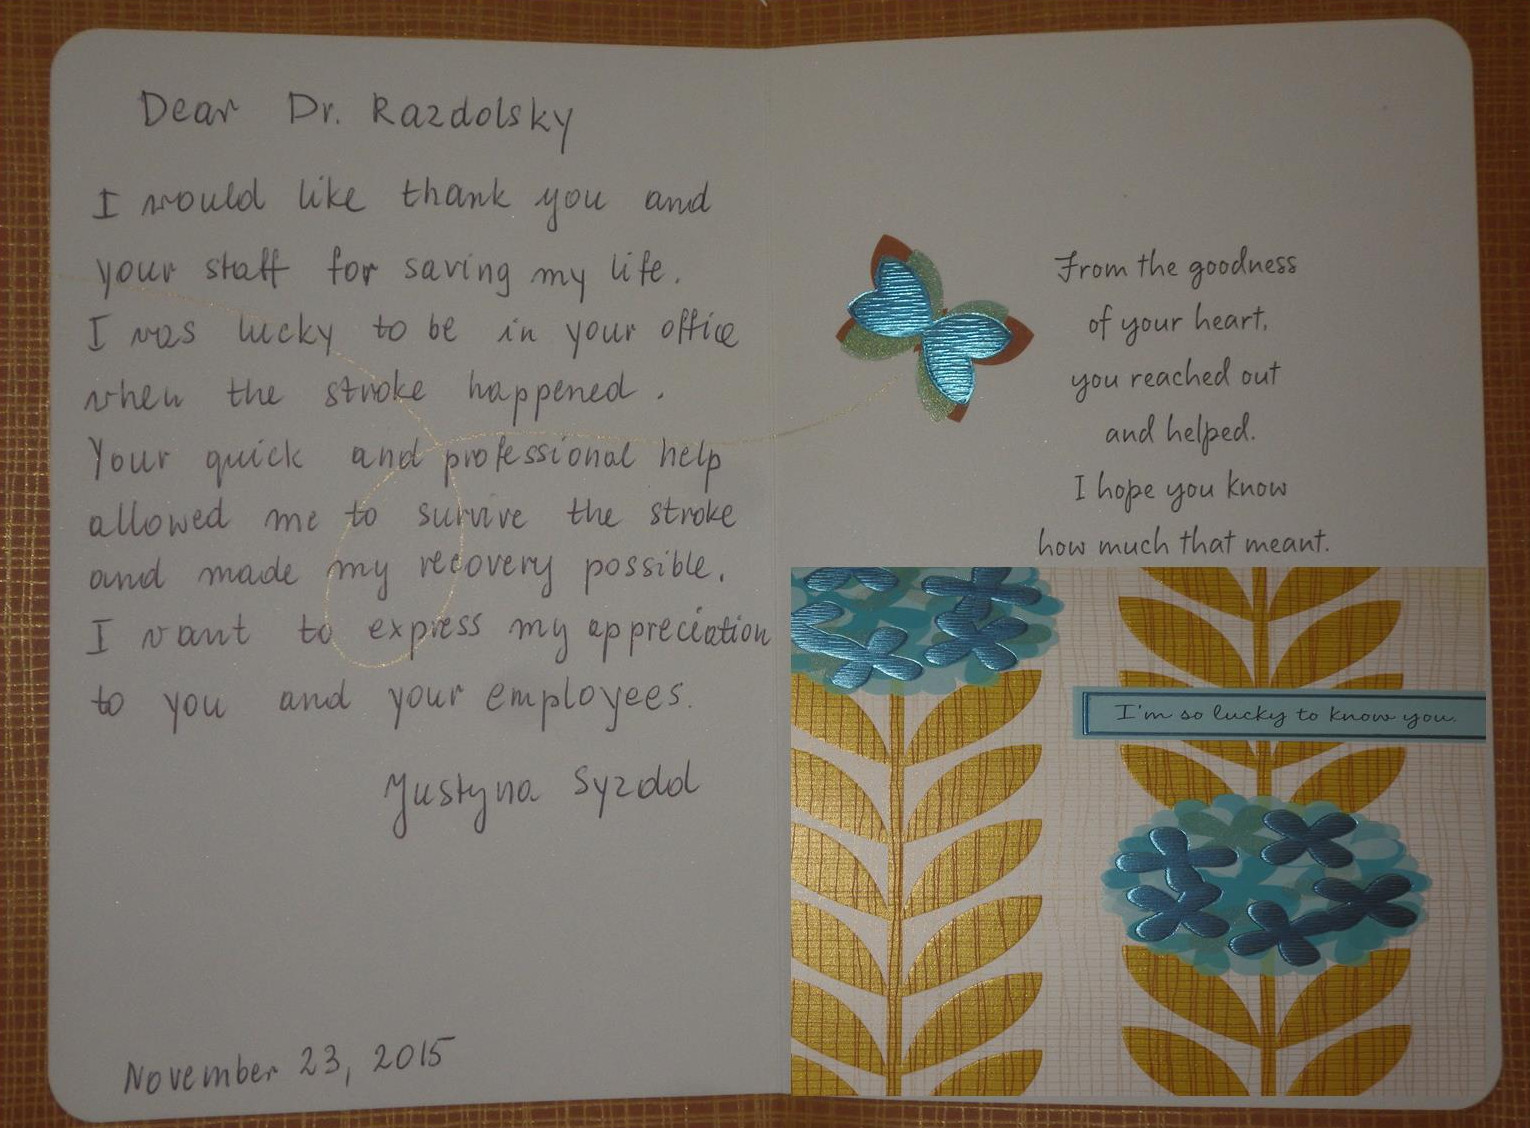 Dear Dr. Razdolsky
I would like thank you and
your staff for saving my life.
I was lucky to be in your office
when the stroke happened.
Your quick and professional help
allowed me to survive the stroke
and made my recovery possible.
I want to express my appreciation
to you and your employees.
Justyna Syzdol
November 23, 2015
From the goodness
of your heart,
you reached out
and helped.
I hope you know
how much that meant.
I'm so lucky to know you.